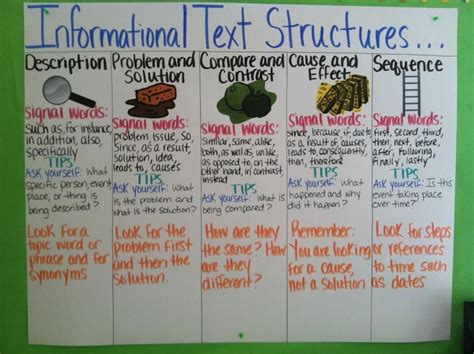 Informational Text Structures...
Description
Signal Words:
Such as, for instance,
in addition, also,
specifically
TIPS
Ask yourself: What
specific person, event,
place, or thing is
being described?
Look for a
topic word or
phrase and for
synonyms
Problem and
Solution
Signal Words:
problem issue, so,
Since, as a result,
solution, idea,
leads to, causes
TIPS
Ask yourself: What
is the problem and
what is the solution?
Look for the
problem first
and then the
solution.
Compare and
Contrast
Signal Words:
Similar, same, alike,
both, as well as, unlike,
as opposed to, on the
other hand, in contrast,
instead
TIPS
Ask yourself: What
is being compared?
How are they
the same? How
are they
different?
Cause and
Effect
Signal Words:
since, because, if, due to
as a result of, causes,
leads to, consequently,
then, therefore
TIPS
Ask yourself: What
happened and why
did it happen?
Remember:
You are looking
for a cause,
not a solution
Sequence
Signal Words:
first, second, third,
then, next, before,
after, following,
Finally, lastly
TIPS
Ask yourself: Is this
event taking place
over time?
Look for steps
or references
to time such
as dates